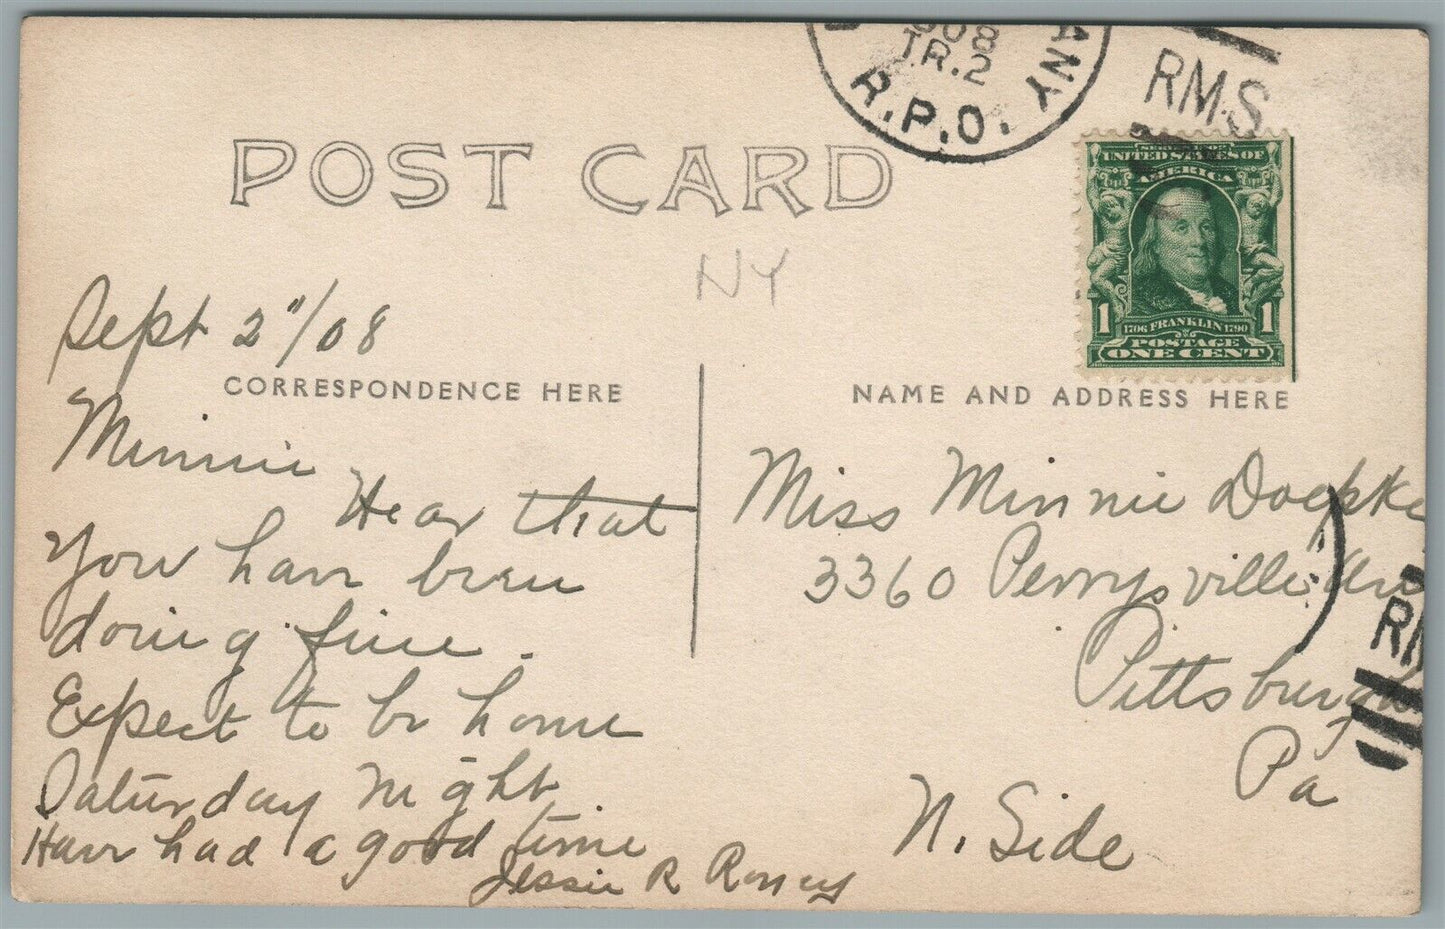 1908
TR.2
R.P.O.
ANY
RMS
POST CARD
UNITED STATES OF
AMERICA
1 1706 FRANKLIN 1790 1
POSTAGE
ONE CENT
NY
Sept 2"/08
CORRESPONDENCE HERE
Minnie
Hear that
you have been
doing fine.
Expect to be home
Saturday night
Have had a good time
Jessie R
NAME AND ADDRESS HERE
Miss Minnie Doepke
3360 Perrysville Ave
Pittsburgh
Pa
N. Side